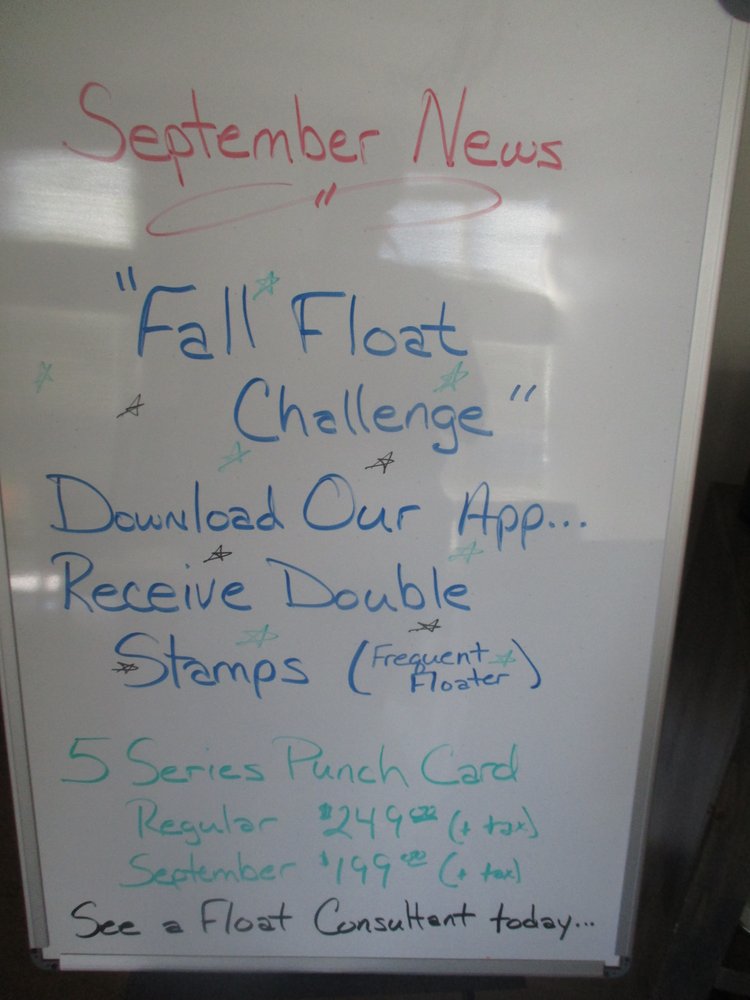 September News
"Fall Float
Challenge"
Download Our App...
Receive Double
Stamps (Frequent Floater)
5 Series Punch Card
Regular $249.00 (+ tax)
September $199.00 (+ tax)
See a Float Consultant today...